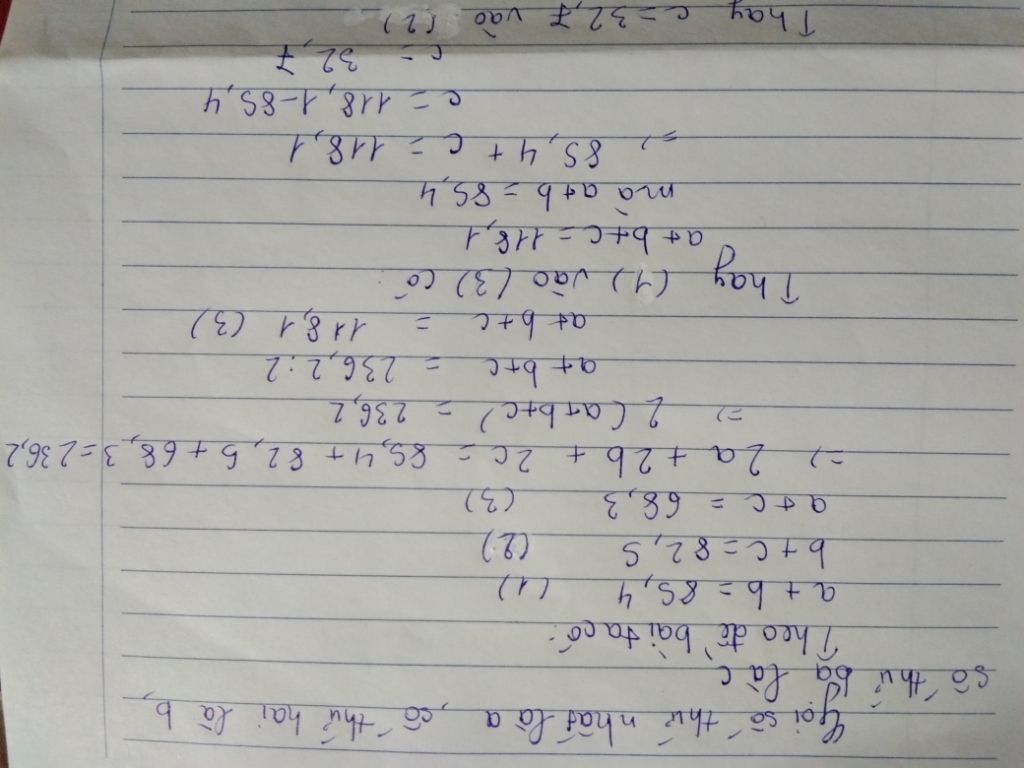 Gọi số thứ nhất là a, số thứ hai là b,
số thứ ba là c
Theo đề bài ta có:
a + b = 85,4 (1)
b + c = 82,5 (2)
a + c = 68,3 (3)
=> 2a + 2b + 2c = 85,4 + 82,5 + 68,3 = 236,2
=> 2(a+b+c) = 236,2
a + b + c = 236,2 : 2
a + b + c = 118,1 (3)
Thay (1) vào (3) có:
a + b + c = 118,1
mà a + b = 85,4
=> 85,4 + c = 118,1
c = 118,1 - 85,4
c = 32,7
Thay c = 32,7 vào (2)